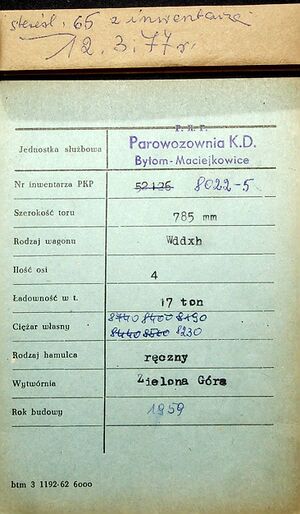 skreśl. 65 z inwentarza
12.3.77 r.
P.K.P.
Jednostka służbowa Parowozownia K.D.
Bytom-Maciejkowice
Nr inwentarza PKP 52126 8022-5
Szerokość toru 785 mm
Rodzaj wagonu Wddxh
Ilość osi 4
Ładowność w t. 17 ton
Ciężar własny 8740 8400 8190
8440 8520 8230
Rodzaj hamulca ręczny
Wytwórnia Zielona Góra
Rok budowy 1959
btm 3 1192-62 6000